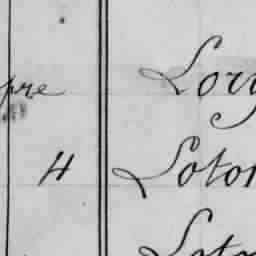 pre Lory
4 Loton
Loto